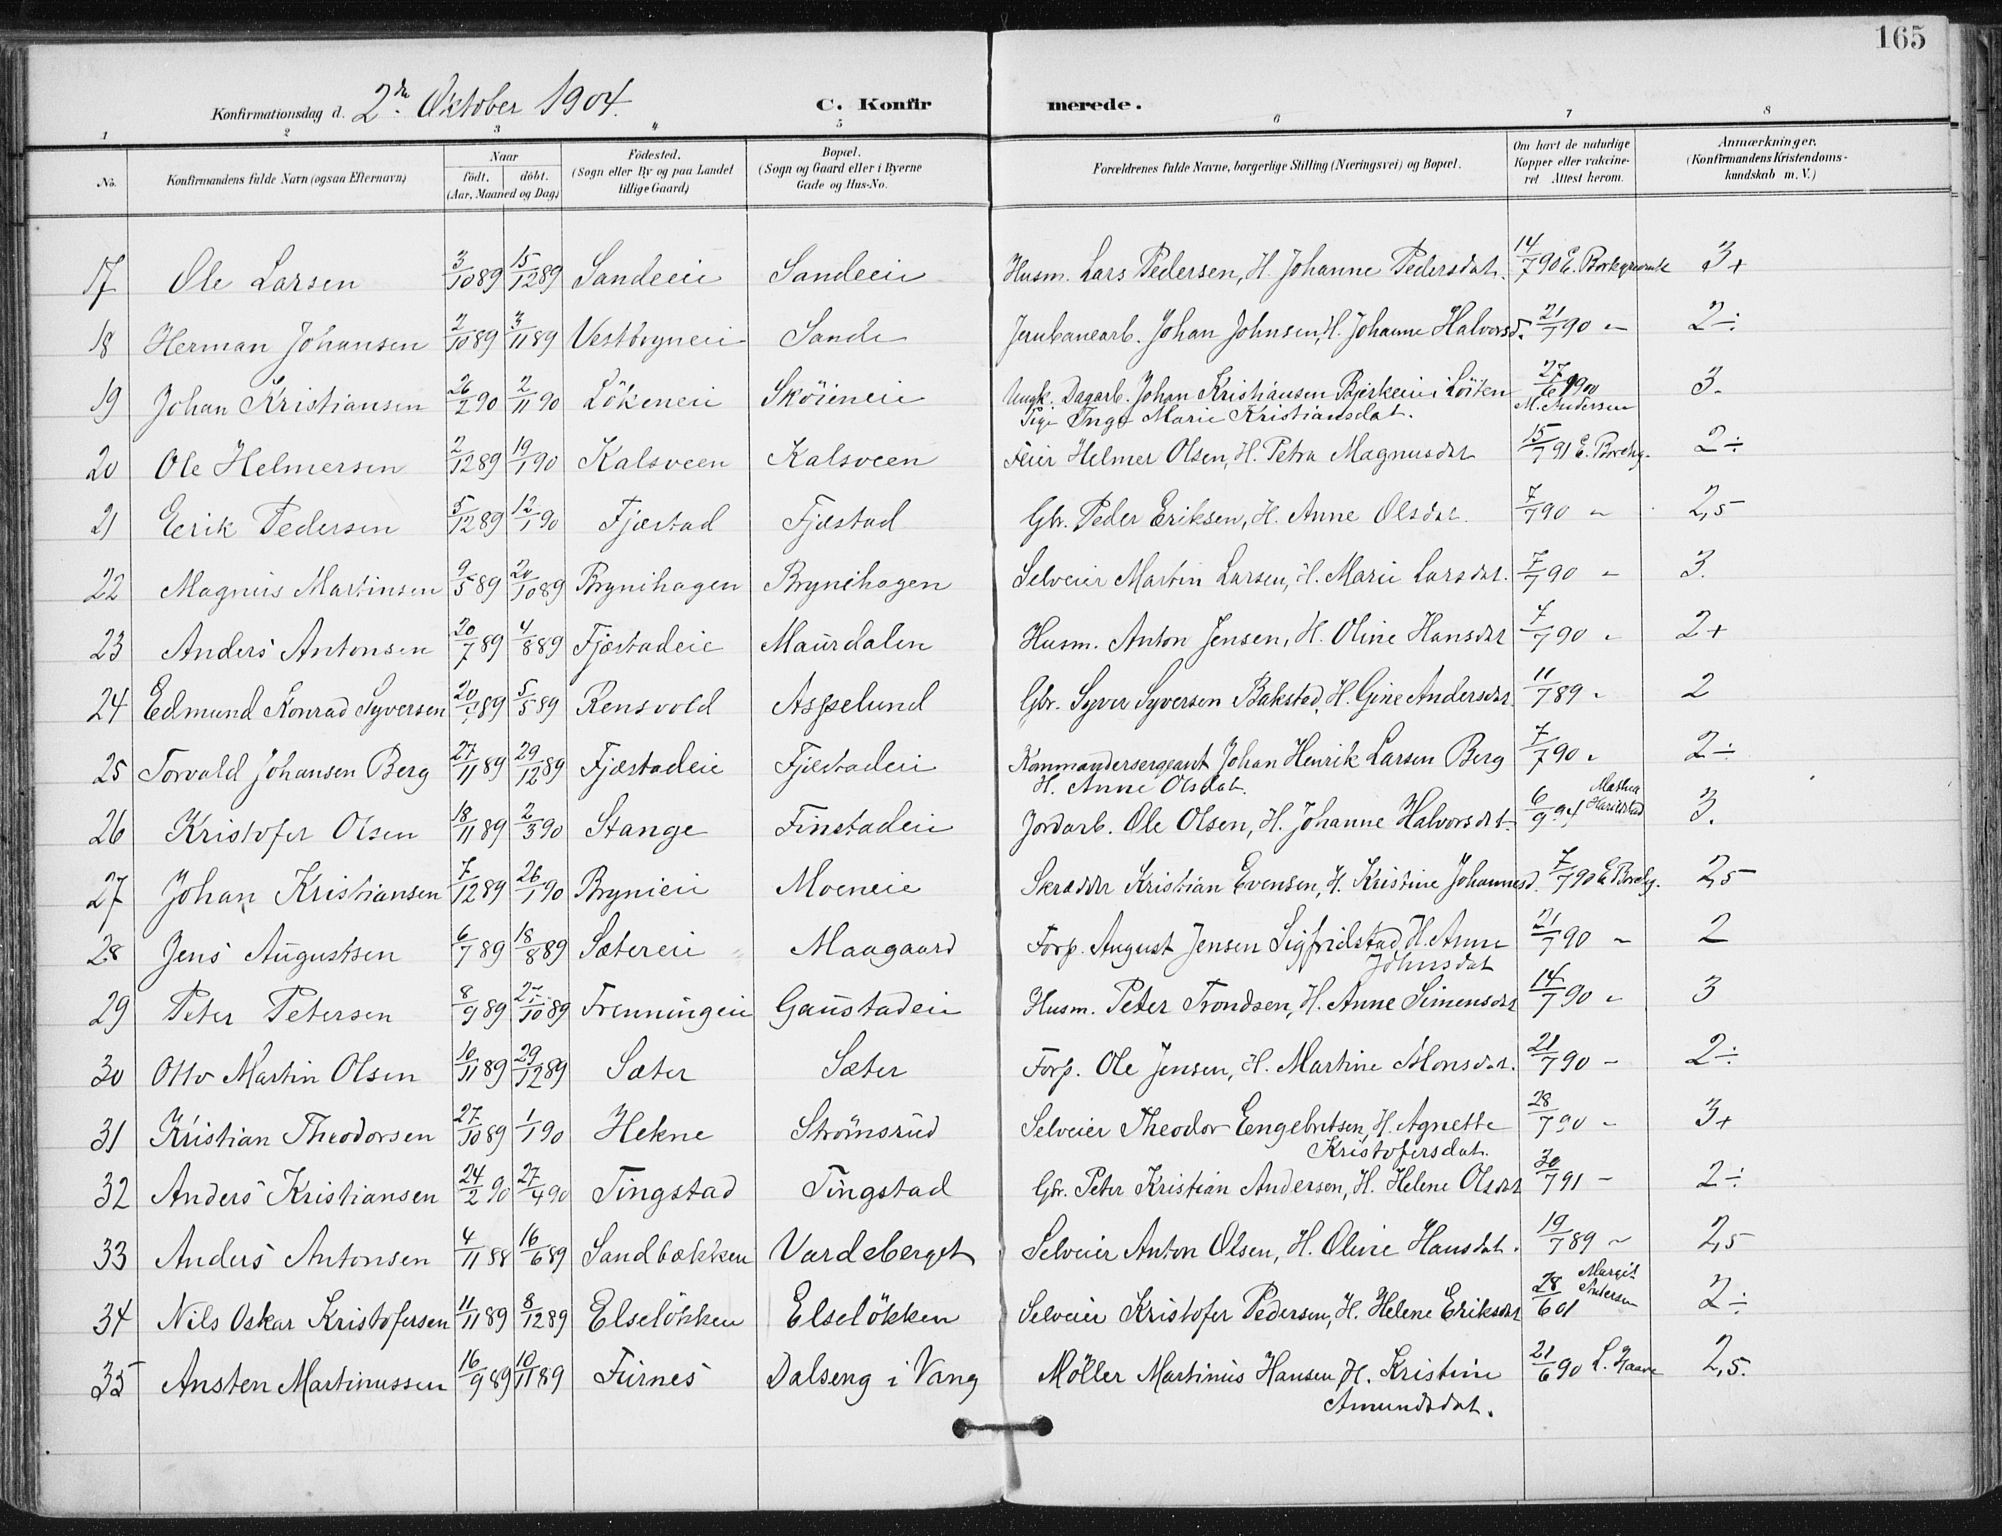 165
Konfirmationsdag d. 2den Oktober 1904. C. Konfirmerede.
1 2 3 4 5 6 7 8
No. Konfirmandens fulde Navn (ogsaa Efternavn) Naar født. døbt. (Aar, Maaned og Dag) Fødested. (Sogn eller By og paa Landet tillige Gaard) Bopæl. (Sogn og Gaard eller i Byerne Gade og Hus-No. Forældrenes fulde Navne, borgerlige Stilling (Næringsvei) og Bopæl. Om havt de naturlige Kopper eller vakcineret Attest herom. Anmerkninger. (Konfirmandens Kristendomskundskab m. V.)
17 Ole Larsen 3/10 89 15/12 89 Sandeeie Sandeeie Husm. Lars Pedersen, H. Johanne Pedersdat. 14/7 90 E. 3+
18 Herman Johansen 2/10 89 3/11 89 Vestbryneie Sande Jernbanearb. Johan Johnsen, H. Johanne Halvorsd. 21/7 90 " 2÷
19 Johan Kristiansen 26/2 90 2/11 90 Lökeneie Sköieneie Ungk. Dagarb. Johan Kristiansen Bjerkeeie i Löiten 27/6 M. Andersen 3.
Pige Inga Marie Kristiansdat.
20 Ole Helmersen 2/12 89 19/1 90 Kalsveen Kalsveen Feier Helmer Olsen, H. Petra Magnusdat 15/7 91 E. Borchg. 2÷
21 Eerik Pedersen 5/12 89 12/1 90 Fjæstad Fjæstad Gbr. Peder Eriksen, H. Anne Olsdat. 7/7 90 " 2,5
22 Magnus Martinsen 9/5 89 20/10 89 Brynihagen Brynihagen Selveier Martin Larsen, H. Marie Larsdat. 7/7 90 " 3.
23 Anders Antonsen 20/7 89 4/8 89 Fjæstadeie Maurdalen Husm. Anton Jensen, H. Oline Hansdat 7/7 90 " 2+
24 Edmund Konrad Syversen 20/ 89 5/5 89 Rensvold Aspelund Gbr. Syver Syversen Bakstad, H. Gine Andersdat. 11/7 89 " 2
25 Torvald Johansen Berg 27/11 89 29/12 89 Fjæstadeie Fjæstadeie Kommandersergeant Johan Henrik Larsen Berg 7/7 90 " 2÷
H. Anne Olsdat.
26 Kristofer Olsen 18/11 89 2/3 90 Stange Finstadeie Jordarb. Ole Olsen, H. Johanne Halvorsdat. 6/9 94 Mathea 3.
27 Johan Kristiansen 7/12 89 26/1 90 Brynieie Moeneie Skrædder Kristian Evensen, H. Kristine Johannesd. 7/7 90 E Borchg. 2,5
28 Jens Augustsen 6/7 89 18/8 89 Sætereie Maagaard Forp. August Jensen Sigfridstad H. Anne 21/7 90 " 2
Johnsdat
29 Peter Petersen 8/9 89 27/10 89 Frenningeie Gaustadeie Husm. Peter Trondsen, H. Anne Simensdat 14/7 90 " 3
30 Otto Martin Olsen 10/11 89 29/12 89 Sæter Sæter Forp. Ole Jensen, H. Martine Monsdat. 21/7 90 " 2÷
31 Kristian Theodorsen 27/10 89 1/1 90 Hekne Strömsrud Selveier Theodor Engebretsen, H. Agnette 28/7 90 " 3+
Kristofersdat.
32 Anders Kristiansen 24/2 90 27/4 90 Tingstad Tingstad Gbr. Peter Kristian Andersen, H. Helene Olsdat 30/7 91 " 2÷
33 Anders Antonsen 4/11 88 16/6 89 Sandbækken Vardeberget Selveier Anton Olsen, H. Oline Hansdat. 19/7 89 " 2,5
34 Nils Oskar Kristofersen 11/11 89 8/12 89 Elselökken Elselökken Selveier Kristofer Pedersen, H. Helene Eriksdat 28/6 01 Margit Andersen 2÷
35 Ansten Martinussen 16/9 89 10/11 89 Furnes Dalseng i Vang Møller Martinus Hansen H. Kristine 21/6 90 L. Haave 2,5.
Amundsdat.